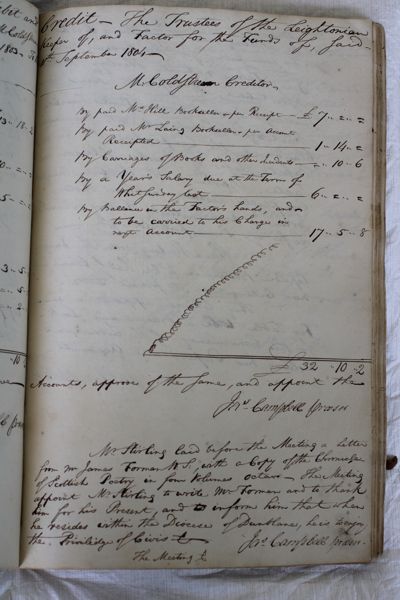 Credit – The Trustees of the Leightonian
keeper of, and Factor for the Funds of, said
September 1804
Mr Coldstream Creditor
By paid Mr Hill Bookseller per Receipt £ 7 „ „
By paid Mr Laing Bookseller per Account
Receipted 1 „ 14 „
By Carriages of Books and other Incidents „ 10 „ 6
By a Year's Salary due at the Term of
Whitsunday last 6 „ „
By Ballance in the Factor's hands, and
to be carried to his Charge in
next Account 17 „ 5 „ 8
£ 32 „ 10 „ 2
Accounts, approve of the same, and appoint the
Jno. Campbell preses
Mr Stirling laid before the Meeting a letter
from Mr James Forman W.S. with a Copy of the Chronicle
of Scottish Poetry in four Volumes octavo – The Meeting
appoint Mr Stirling to write Mr Forman and to thank
him for his Present, and to inform him that when
he resides within the Diocese of Dunblane, he is to enjoy
the Priviledge of Civis
Jno. Campbell preses
The Meeting